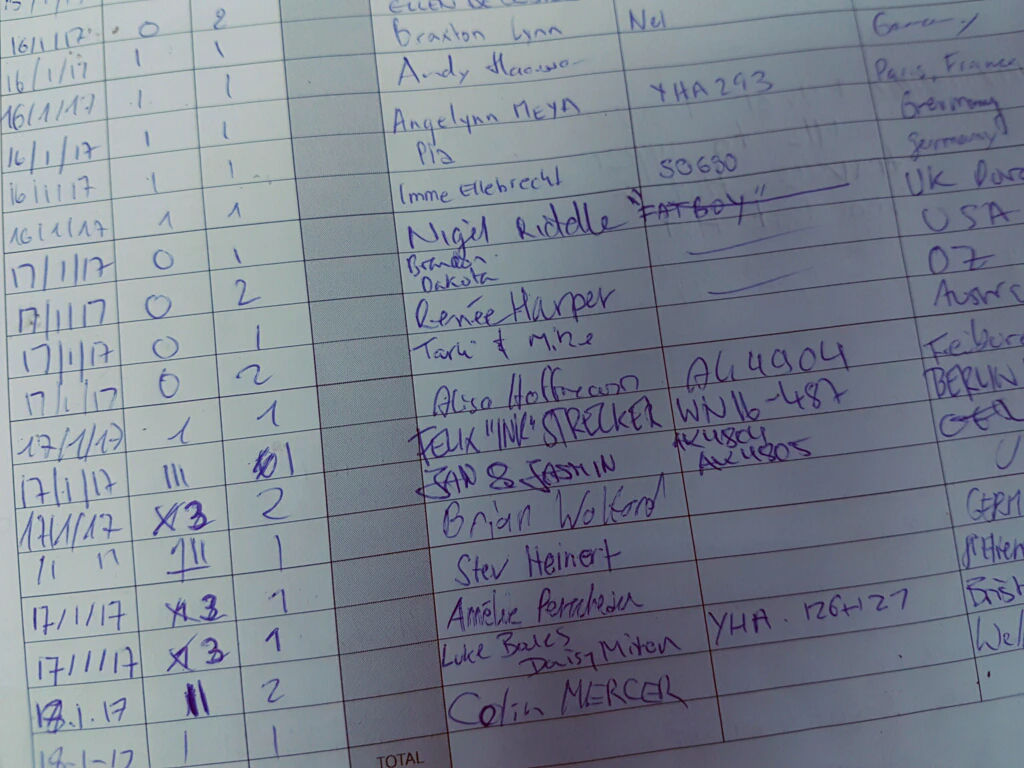 16/1/17 0 2 Braxton Lynn Nel Germany
16/1/17 1 1 Andy
16/1/17 1 1 Angelynn MEYA YHA 293 Paris, France
16/1/17 1 1 Pia Germany
16/1/17 1 1 Imme Ellebrecht SO630 Germany
16/1/17 1 1 Nigel Riddle "FATBOY" UK
17/1/17 0 1 Brandon Dakota USA
17/1/17 0 2 Renée Harper OZ
17/1/17 0 1 & Mike
17/1/17 0 2 Alisa Hoffmann AU4904
17/1/17 1 1 FELIX "INK" STRECKER WN16-487 BERLIN
17/1/17 III 1 JAN & JASMIN AU4804 AU4805 GER
17/1/17 3 2 Brian Walford U
11 11 III 1 Stev Heinert GERM
17/1/17 3 1 Amélie
17/1/17 3 1 Luke Daisy Miton YHA. 126+127
18.1.17 II 2 Colin MERCER Wel
18-1-17 1 1
TOTAL